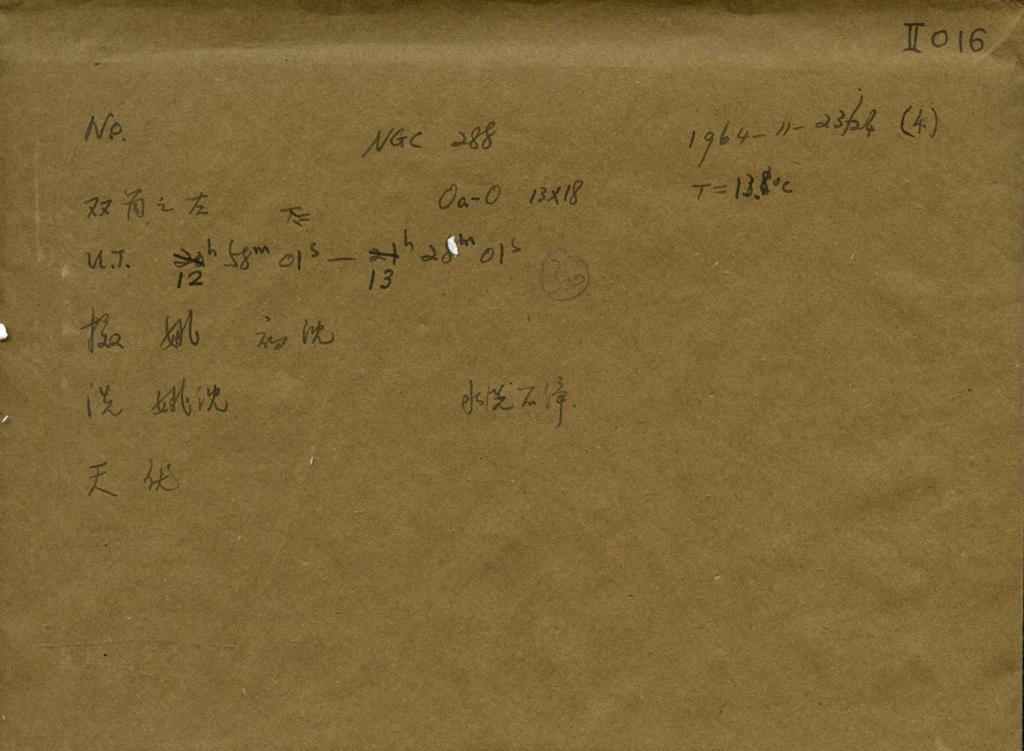 II 016
No. NGC 288 1964-11-23/24 (4)
双筒之左 T= Oa-O 13×18 T=13.8°C
U.T. 20h 58m 01s — 21h 28m 01s 30
12 13
摄 姚 初 沈
洗 姚沈 水洗不净.
天 优